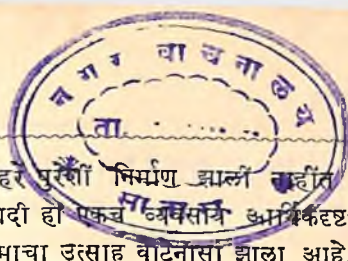 नगर वाचनालय
ता.
हरें पुरेशीं निर्माण झालीं नाहींत
दी हा एकच व्यवसाय आर्थिकदृष्ट
माचा उत्साह वाटेनासा झाला आहे